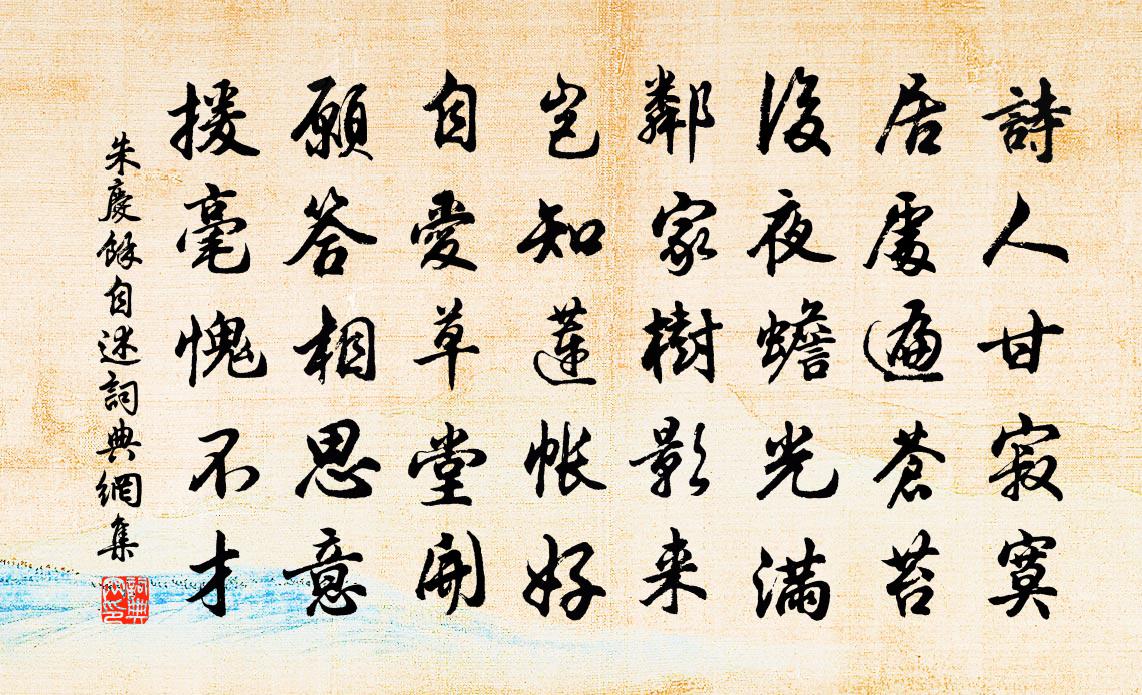 詩人甘寂寞
居處遍蒼苔
後夜蟾光滿
鄰家樹影来
岂知蓮帐好
自愛草堂開
願答相思意
援毫愧不才
朱慶餘自述詞典網集